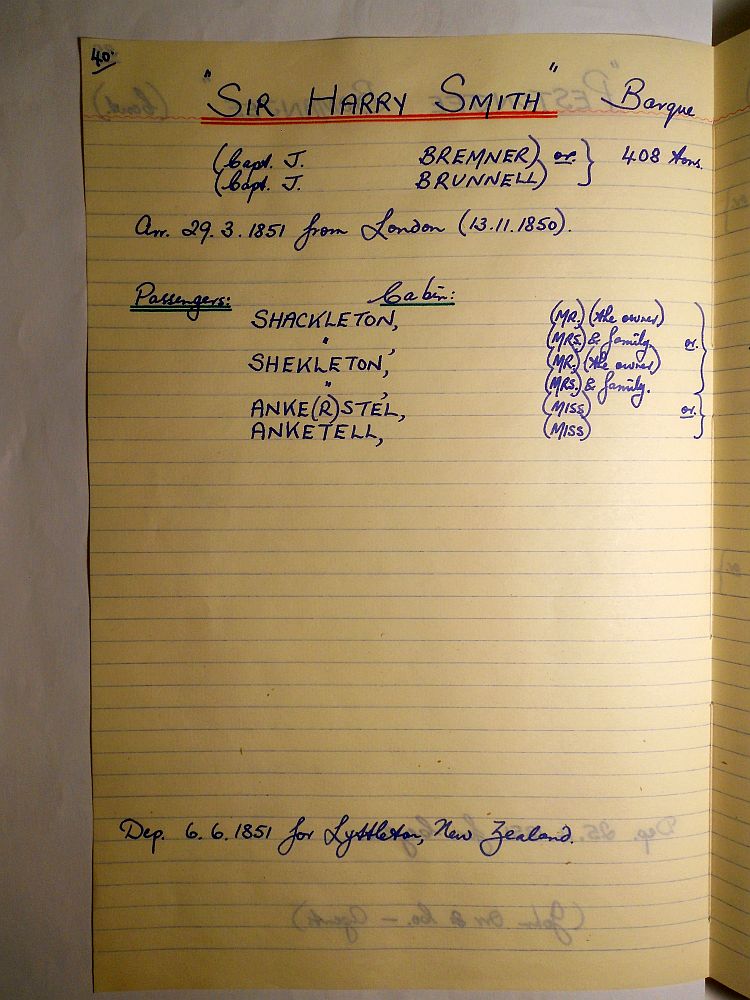 40.
"SIR HARRY SMITH" Barque
(Capt. J. BREMNER) or. } 408 tons.
(Capt. J. BRUNNELL)
Arr. 29.3.1851 from London (13.11.1850).
Passengers: Cabin:
SHACKLETON, (MR.) (the owner)
" , (MRS.) & family. or.
SHEKLETON, (MR.) (the owner)
" , (MRS.) & family.
ANKE(R)STEL, (MISS) or.
ANKETELL, (MISS)
Dep. 6.6.1851 for Lyttleton, New Zealand.